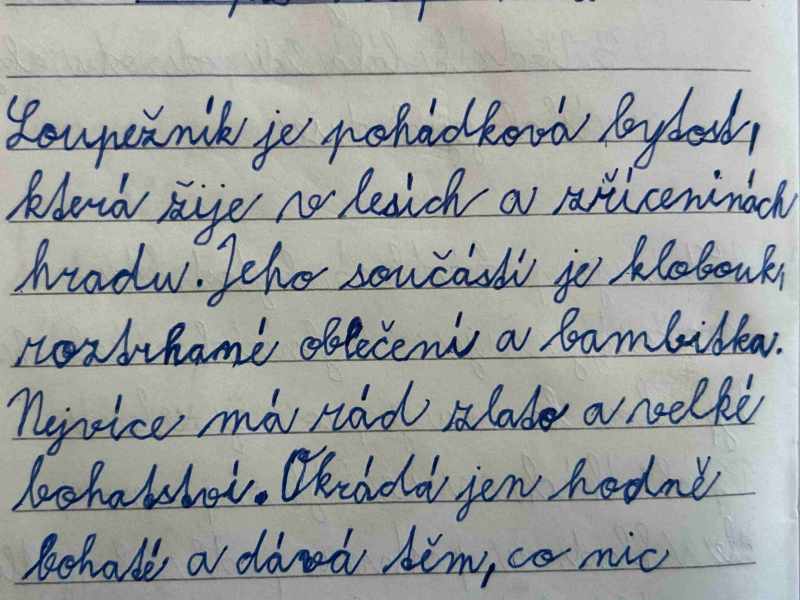 Loupežník je pohádková bytost,
která žije v lesích a zříceninách
hradu. Jeho součástí je klobouk,
roztrhané oblečení a bambitka.
Nejvíce má rád zlato a velké
bohatství. Okrádá jen hodně
bohaté a dává těm, co nic